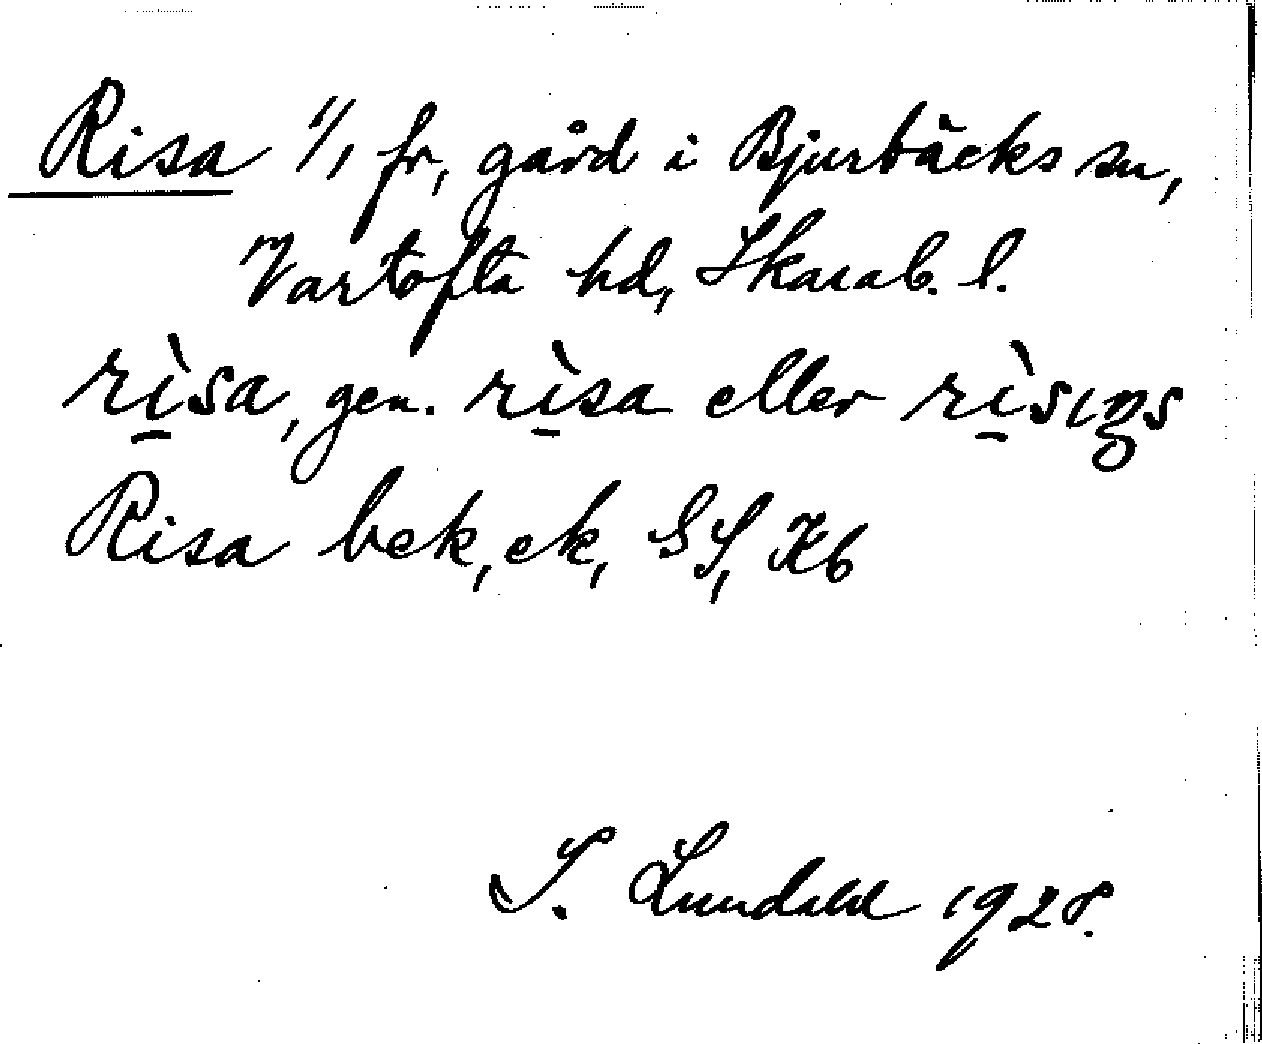 Risa 1/1 fr, gård i Bjurbäcks sn,
Vartofta hd, Skarab. l.
rìsa, gen. rìsa eller rìsıŋs
Risa bek, ek, GS, Kb
I. Lundahl 1928.